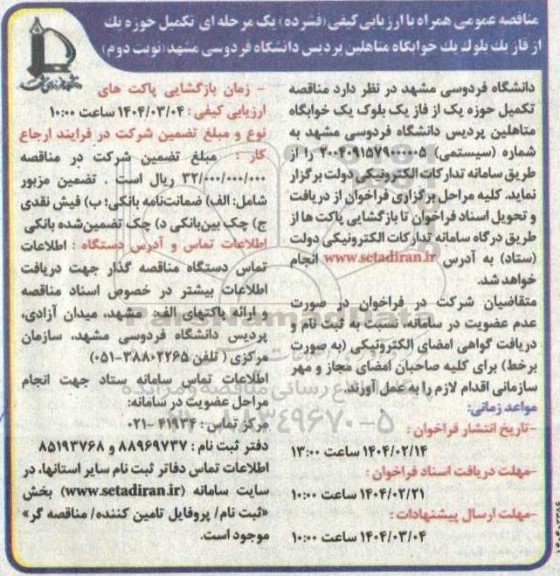 مناقصه عمومی همراه با ارزیابی کیفی (فشرده) یک مرحله ای تکمیل حوزه یک
از فاز یک بلوک یک خوابگاه متاهلین پردیس دانشگاه فردوسی مشهد (نوبت دوم)
دانشگاه فردوسی مشهد در نظر دارد مناقصه
تکمیل حوزه یک از فاز یک بلوک یک خوابگاه
متاهلین پردیس دانشگاه فردوسی مشهد به
شماره (سیستمی) ۲۰۰۴۰۹۱۵۷۹۰۰۰۰۰۵ را از
طریق سامانه تدارکات الکترونیکی دولت برگزار
نماید. کلیه مراحل برگزاری فراخوان از دریافت
و تحویل اسناد فراخوان تا بازگشایی پاکت ها از
طریق درگاه سامانه تدارکات الکترونیکی دولت
(ستاد) به آدرس www.setadiran.ir انجام
خواهد شد.
متقاضیان شرکت در فراخوان در صورت
عدم عضویت در سامانه، نسبت به ثبت نام و
دریافت گواهی امضای الکترونیکی (به صورت
برخط) برای کلیه صاحبان امضای مجاز و مهر
سازمانی اقدام لازم را به عمل آورند.
مواعد زمانی:
-تاریخ انتشار فراخوان :
۱۴۰۴/۰۲/۱۴ ساعت ۱۳:۰۰
-مهلت دریافت اسناد فراخوان :
۱۴۰۴/۰۲/۲۱ ساعت ۱۰:۰۰
-مهلت ارسال پیشنهادات :
۱۴۰۴/۰۳/۰۴ ساعت ۱۰:۰۰
- زمان بازگشایی پاکت های
ارزیابی کیفی : ۱۴۰۴/۰۳/۰۴ ساعت ۱۰:۰۰
نوع و مبلغ تضمین شرکت در فرایند ارجاع
کار : مبلغ تضمین شرکت در مناقصه
۳۲/۰۰۰/۰۰۰/۰۰۰ ریال است . تضمین مزبور
شامل: الف) ضمانت‌نامه بانکی؛ ب) فیش نقدی
ج) چک بین‌بانکی د) چک تضمین‌شده بانکی
اطلاعات تماس و آدرس دستگاه : اطلاعات
تماس دستگاه مناقصه گذار جهت دریافت
اطلاعات بیشتر در خصوص اسناد مناقصه
و ارائه پاکتهای الف: مشهد، میدان آزادی،
پردیس دانشگاه فردوسی مشهد، سازمان
مرکزی ( تلفن ۳۸۸۰۲۲۶۵-۰۵۱)
اطلاعات تماس سامانه ستاد جهت انجام
مراحل عضویت در سامانه:
مرکز تماس : ۴۱۹۳۴ -۰۲۱
دفتر ثبت نام : ۸۸۹۶۹۷۳۷ و ۸۵۱۹۳۷۶۸
اطلاعات تماس دفاتر ثبت نام سایر استانها، در
سایت سامانه (www.setadiran.ir) بخش
«ثبت نام/ پروفایل تامین کننده/ مناقصه گر»
موجود است.